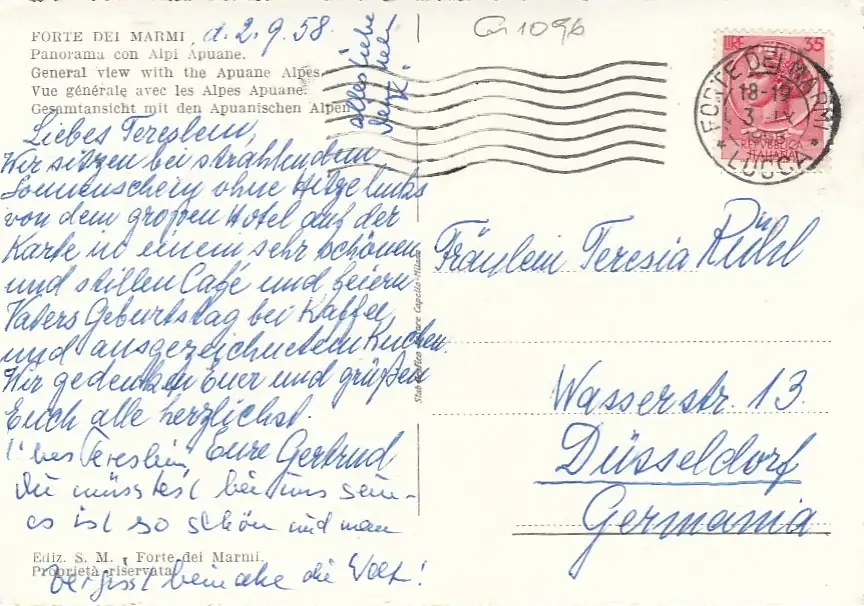 FORTE DEI MARMI, d. 2.9.58.
Panorama con Alpi Apuane.
General view with the Apuane Alpes.
Vue générale avec les Alpes Apuane.
Gesamtansicht mit den Apuanischen Alpen
Liebes Tereslein,
Wir sitzen bei strahlendem
Sonnenschein ohne Hitze links
von dem großen Hotel auf der
Karte in einem sehr schönen
und stillen Café und feiern
Vaters Geburtstag bei Kaffee
und ausgezeichnetem Kuchen.
Wir gedenken Euer und grüßen
Euch alle herzlichst.
Eure Gertrud
Liebes Tereslein,
Du müsstest bei uns sein -
es ist so schön und man
vergisst beinahe die Welt!
alles Liebe
Dein
K.
Ediz. S. M. - Forte dei Marmi.
Proprietà riservata
Stab. Grafico Cesare Capello - Milano
G 1096
LIRE 35
REPVBBLICA
ITALIANA
FORTE DEI MARMI
18-19
3 IX
* LUCCA *
Fräulein Teresia Rühl
Wasserstr. 13.
Düsseldorf
Germania